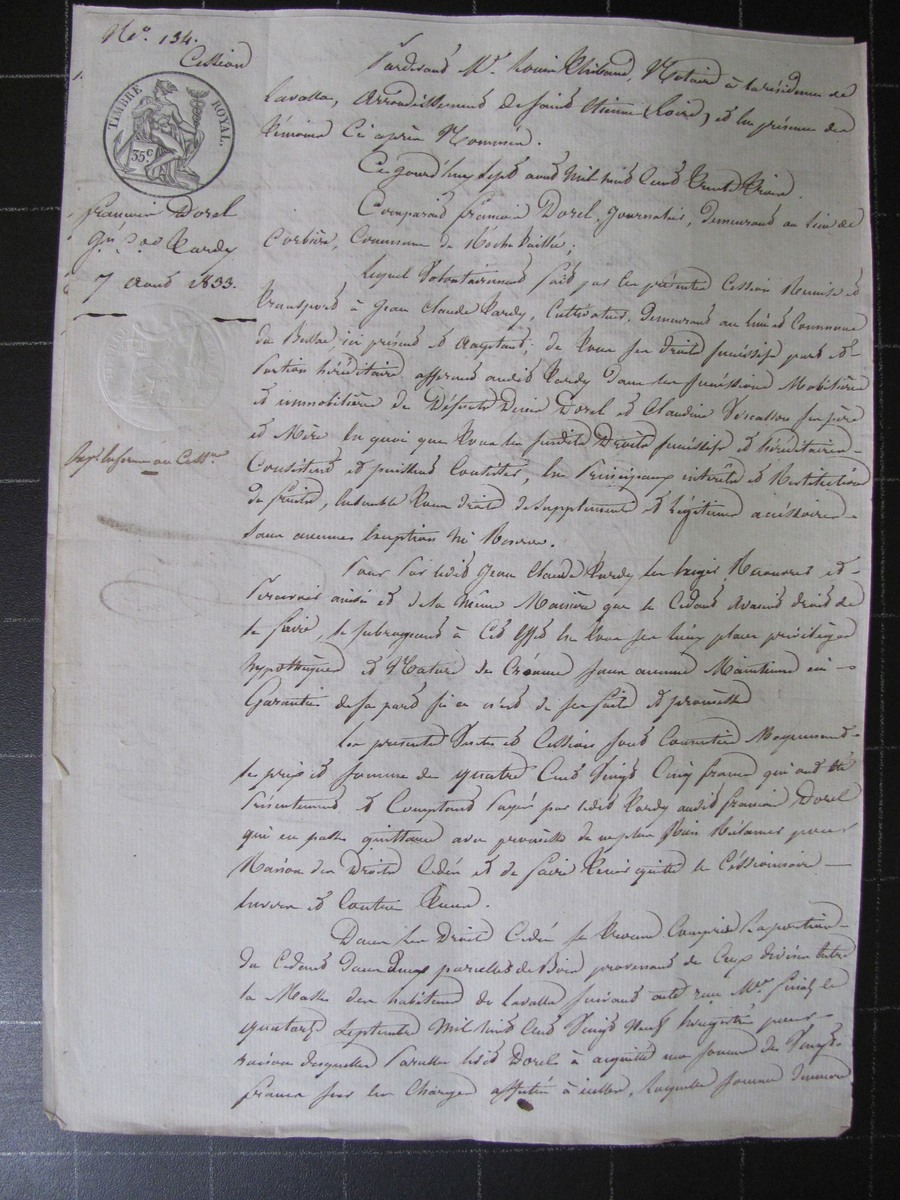 No. 134.
Cession
TIMBRE ROYAL.
35c
françois Dorel
Jn Cde Tardy
7 aoust 1833.
Pardevant Me. Louis Thibaud, Notaire à la résidence de
Lavalla, arrondissement de saint Etienne (Loire) et en présence des
témoins ci après Nommés.
Ce jourd'huy sept aout mil huit cent trente trois
Comparait françois Dorel, journalier, demeurant au lieu de
Corbière, Commune de Rochetaillée,
lequel volontairement fait par les présentes Cession Remise et
transport à Jean Claude Tardy, cultivateur, demeurant au lieu et Commune
du Bessat, ici présent et acceptant; de tous ses droits successifs part et
portion héréditaire afférant audit Tardy dans les successions Mobilière
et immobilière de Défunts Denis Dorel et Claudine ses père
et Mère en quoi que tous les susdits Droits successifs et héréditaires
Consistent et puissent Consister, en principaux intérêts et Restitution
de fruits, ensemble tous droits de supplément et légitimes accessoires
sans aucunes exception ni Reserve.
Pour par ledit Jean Claude Tardy les exiger Recouvrer et
percevoir ainsi et de la même Manière que le Cédant avait droit de
le faire, le subrogeant à cet effet en tous ses lieux, place, privilèges
hypothèques et Nature de Créance sans aucune Maintenue ni
Garantie de sa part si ce n'est de ses faits et promesses
La présente Vente et Cession sont Consentie Moyennant
le prix et somme de quatre Cent Vingt Cinq francs qui ont été
présentement et Comptant payés par ledit Tardy audit françois Dorel
qui en passe quittance avec promesse de ne plus Rien Réclamer pour
Raison des Droits Cédés et de faire tenir quitte le Cessionnaire
envers et Contre tous.
Dans les Droits Cédés se trouve Compris la portion
du Cédant dans deux parcelles de Bois provenant de Coup divisées entre
la Masse des habitants de Lavalla suivant acte reçu Me. le
quatorze septembre mil huit cent vingt neuf Enregistré pour
raison desquelles parcelles ledit Dorel à acquitté une somme de Vingt
francs sur les Charges affectées à icelles, laquelle somme demeure